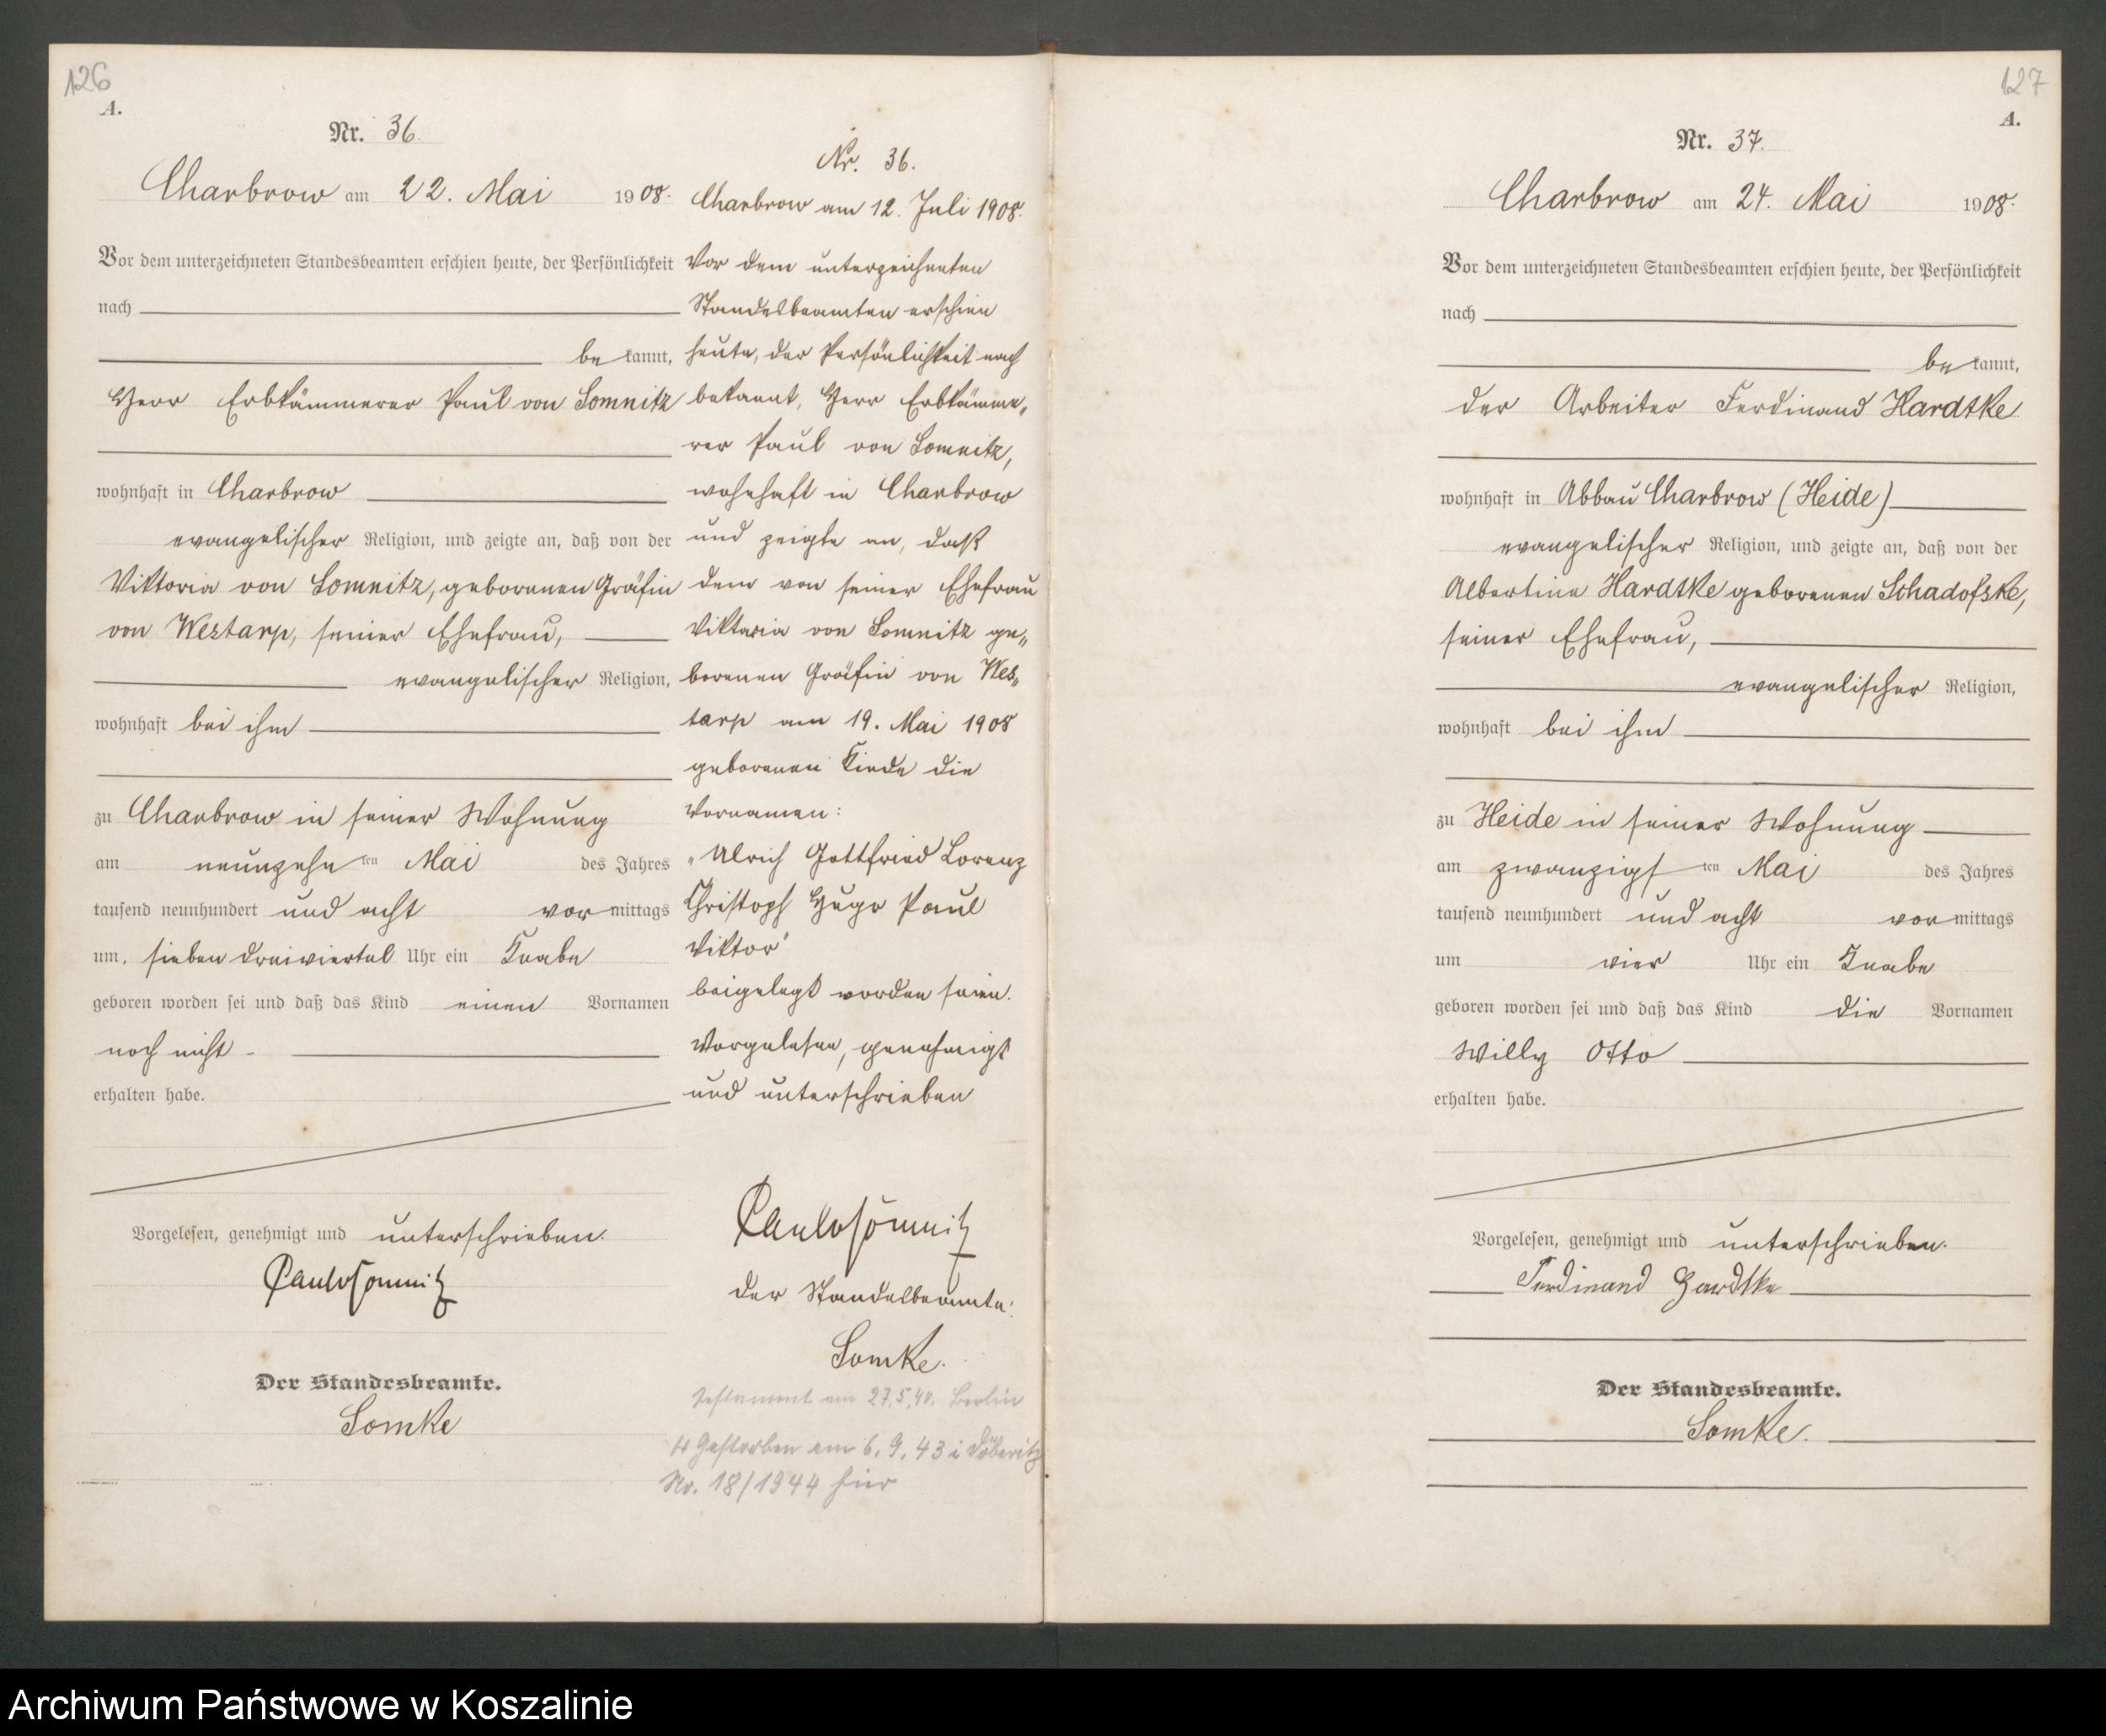 126
A.
Nr. 36.
Charbrow am 22. Mai 1908.
Vor dem unterzeichneten Standesbeamten erschien heute, der Persönlichkeit
nach
be kannt,
Herr Erbkämmerer Paul von Somnitz
wohnhaft in Charbrow
evangelischer Religion, und zeigte an, daß von der
Viktoria von Somnitz, geborenen Gräfin
von Westarp, seiner Ehefrau,
evangelischer Religion,
wohnhaft bei ihm
zu Charbrow in seiner Wohnung
am neunzehn ten Mai des Jahres
tausend neunhundert und acht vor mittags
um sieben dreiviertel Uhr ein Knabe
geboren worden sei und daß das Kind einen Vornamen
noch nicht -
erhalten habe.
Vorgelesen, genehmigt und unterschrieben.
Paul v Somnitz
Der Standesbeamte.
Somke
Nr. 36.
Charbrow am 12. Juli 1908.
Vor dem unterzeichneten
Standesbeamten erschien
heute, der Persönlichkeit nach
bekannt, Herr Erbkämme„
rer Paul von Somnitz,
wohnhaft in Charbrow
und zeigte an, daß
dem von seiner Ehefrau
Viktoria von Somnitz ge„
borenen Gräfin von Wes„
tarp am 19. Mai 1908
geborenen Kinde die
Vornamen:
„Ulrich Gottfried Lorenz
Christoph Hugo Paul
Viktor"
beigelegt worden seien.
Vorgelesen, genehmigt
und unterschrieben
Paul v Somnitz
Der Standesbeamte:
Somke.
Testament am 27.5.40. Berlin
Gestorben am 6.9.43 i Döberitz
No. 18/1944 hier
127
A.
Nr. 37.
Charbrow am 24. Mai 1908.
Vor dem unterzeichneten Standesbeamten erschien heute, der Persönlichkeit
nach
be kannt,
der Arbeiter Ferdinand Hardtke
wohnhaft in Abbau Charbrow (Heide)
evangelischer Religion, und zeigte an, daß von der
Albertine Hardtke geborenen Schadofske,
seiner Ehefrau,
evangelischer Religion,
wohnhaft bei ihm
zu Heide in seiner Wohnung
am zwanzigs ten Mai des Jahres
tausend neunhundert und acht vor mittags
um vier Uhr ein Knabe
geboren worden sei und daß das Kind die Vornamen
Willy Otto
erhalten habe.
Vorgelesen, genehmigt und unterschrieben.
Ferdinand Hardtke
Der Standesbeamte.
Somke.
Archiwum Państwowe w Koszalinie